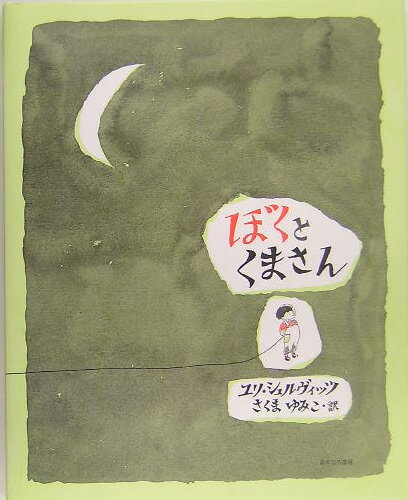 ぼくと
くまさん
ユリ・シュルヴィッツ
さくまゆみこ・訳
あすなろ書房